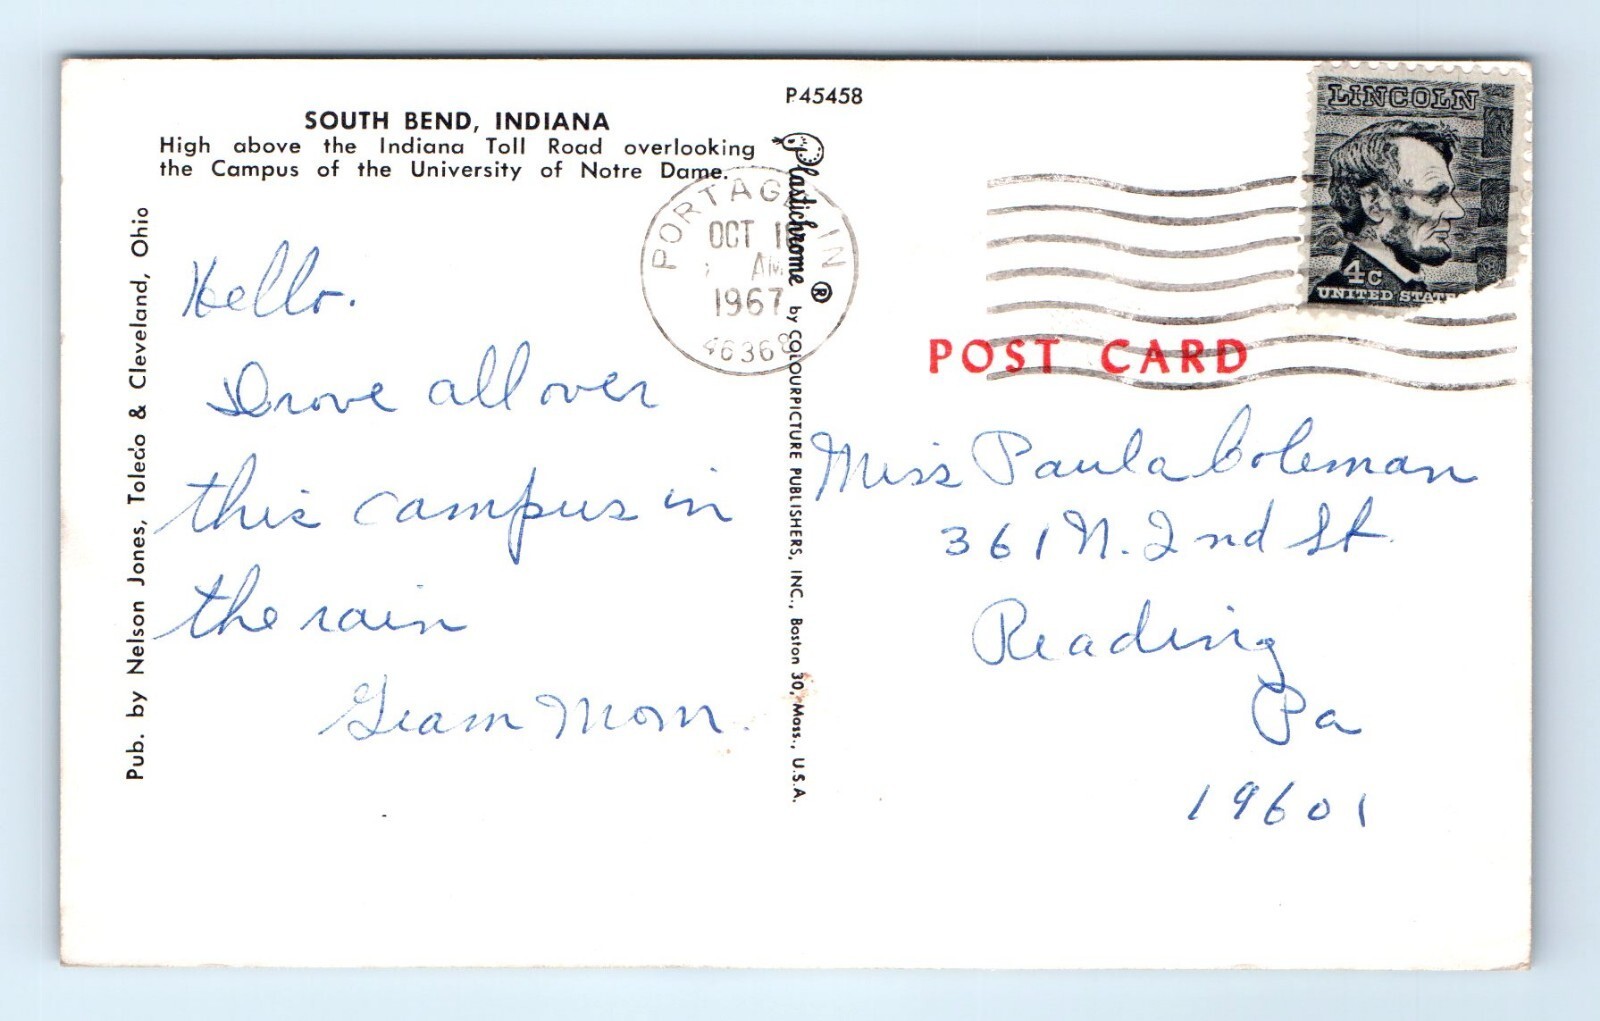 SOUTH BEND, INDIANA
High above the Indiana Toll Road overlooking
the Campus of the University of Notre Dame.
Pub. by Nelson Jones, Toledo & Cleveland, Ohio
Hello.
Drove all over
this campus in
the rain
Gram Mom.
P45458
Plastichrome ® by COLOURPICTURE PUBLISHERS, INC., Boston 30, Mass., U.S.A.
PORTAGE IN
OCT
AM
1967
46368
LINCOLN
4c
UNITED STATE
POST CARD
Miss Paula Coleman
361 N. 2nd St.
Reading
Pa
19601